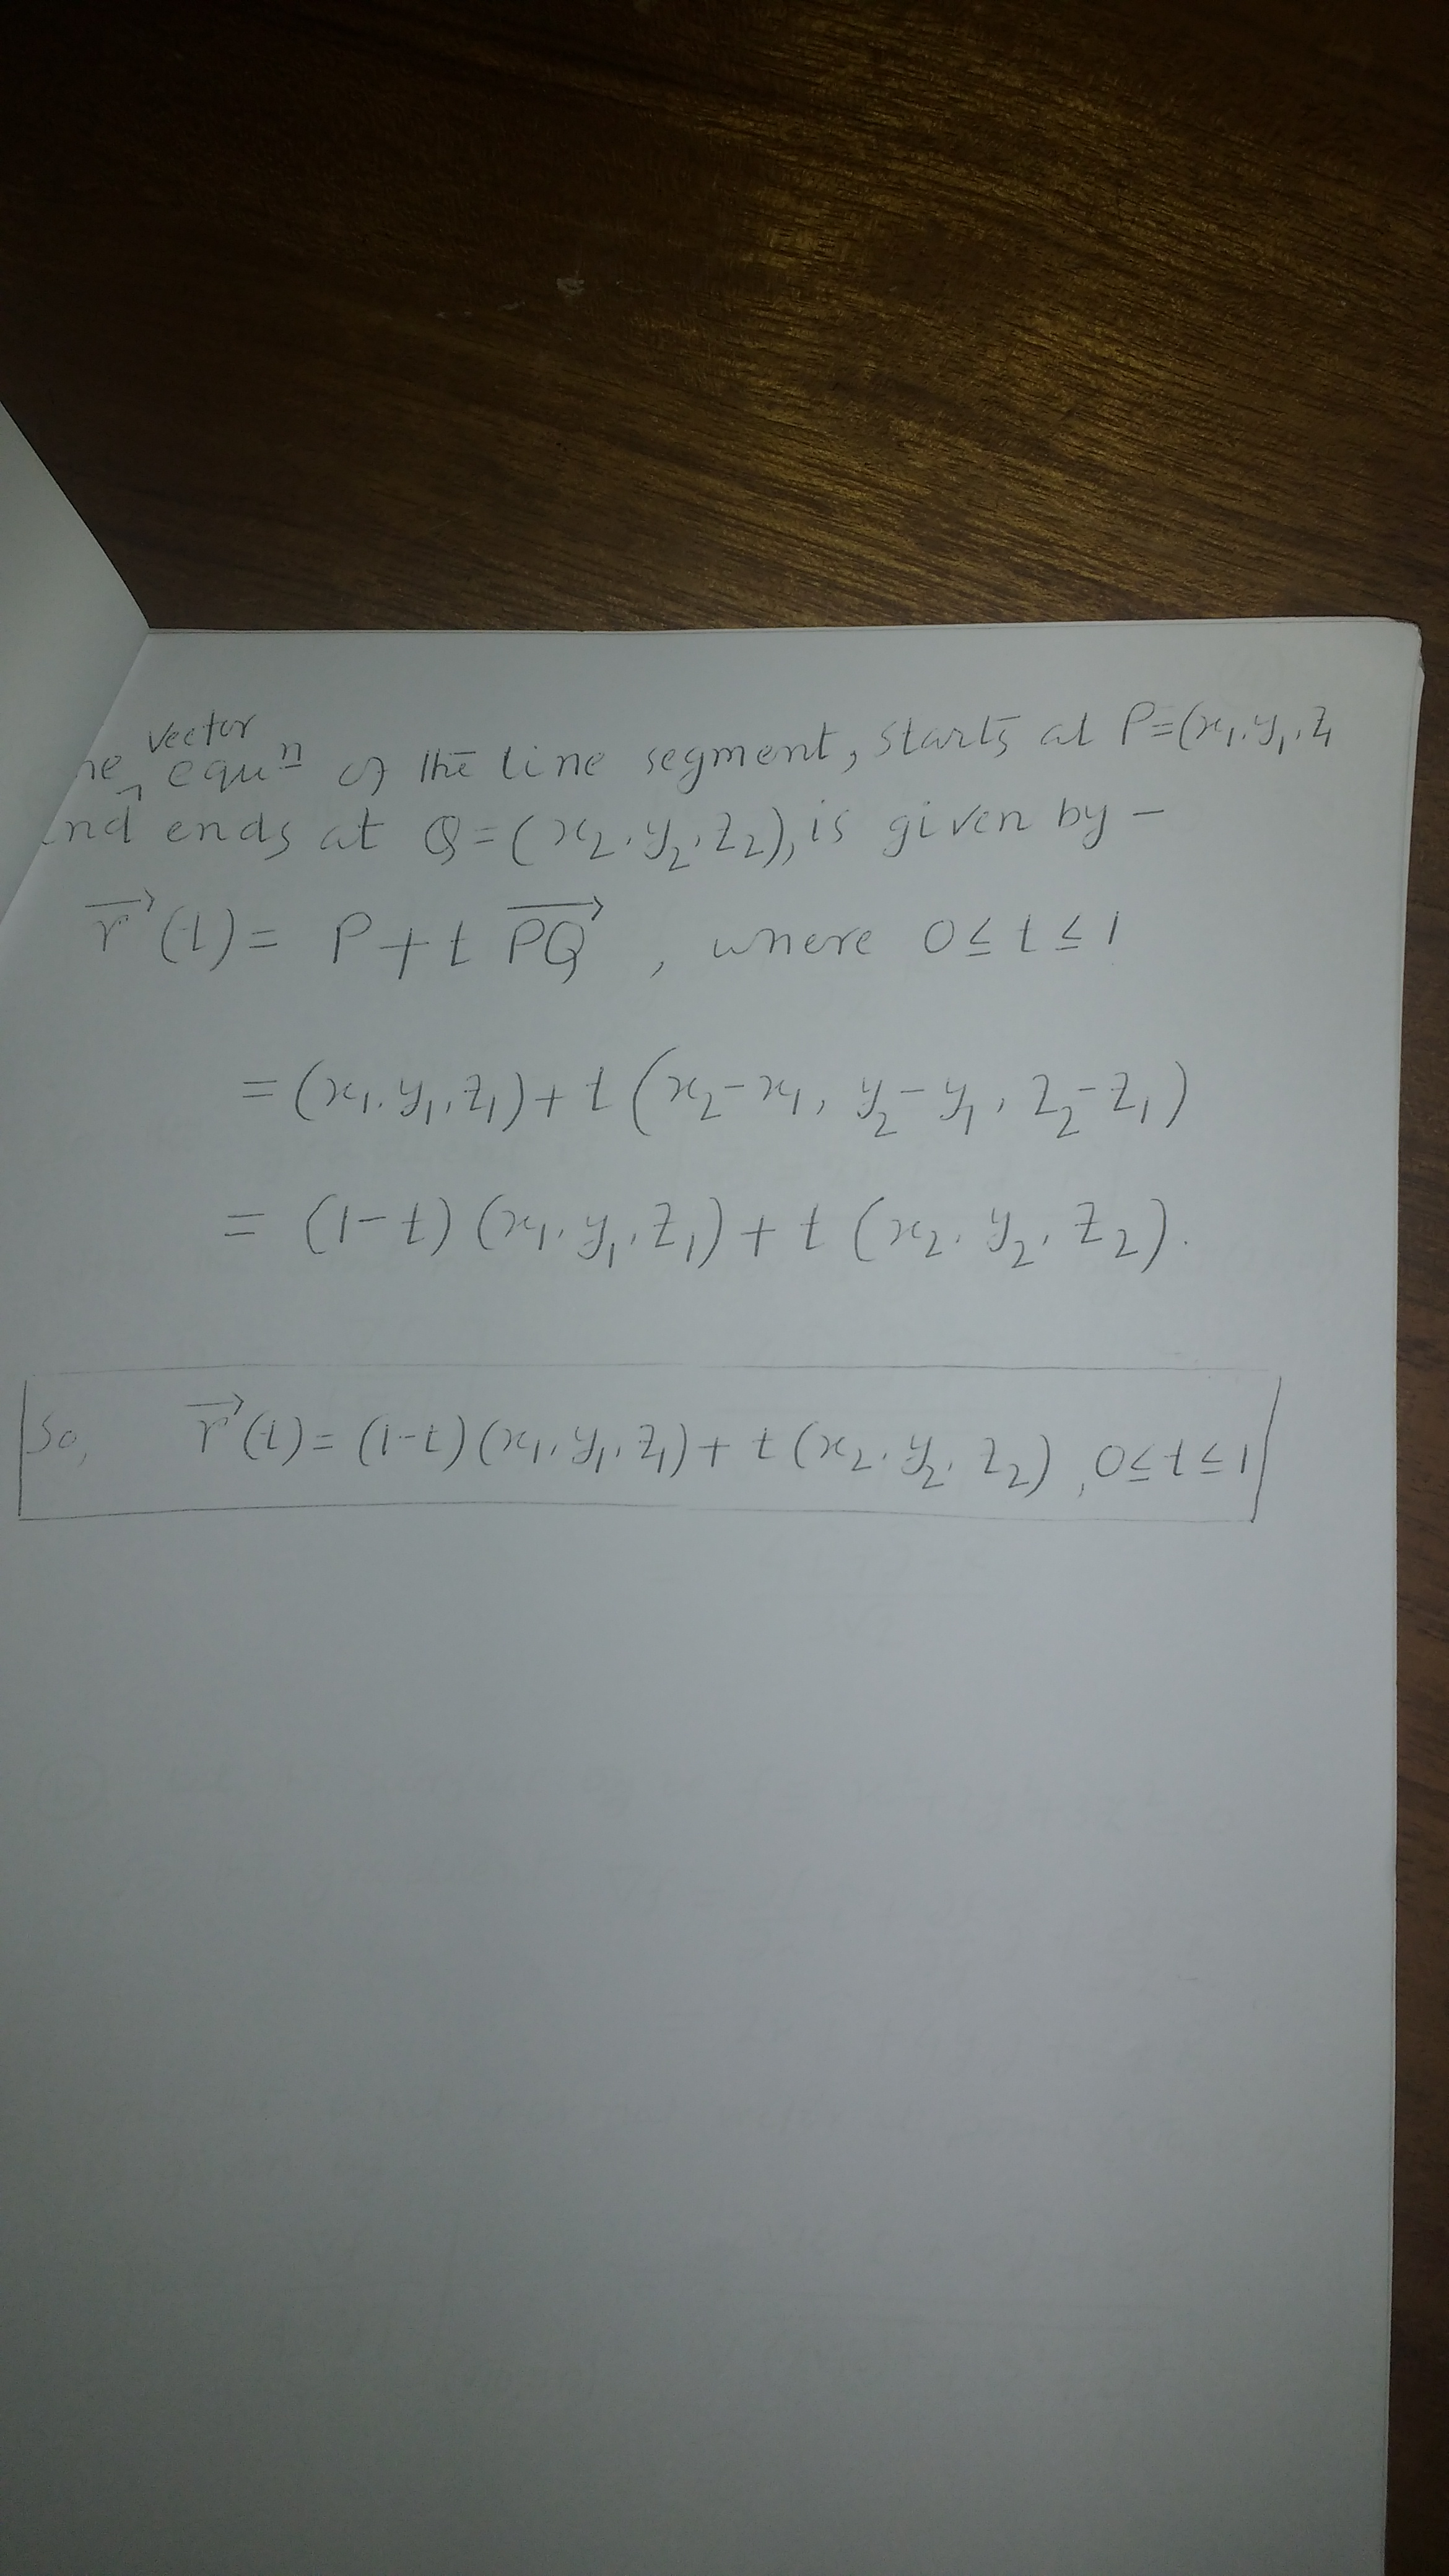 he vector equⁿ of the line segment, starts at P=(x₁, y₁, z₁
and ends at Q=(x₂, y₂, z₂), is given by –
r⃗(t) = P + t PQ⃗ , where 0 ≤ t ≤ 1
= (x₁, y₁, z₁) + t (x₂-x₁, y₂-y₁, z₂-z₁)
= (1-t) (x₁, y₁, z₁) + t (x₂, y₂, z₂).
So, r⃗(t) = (1-t) (x₁, y₁, z₁) + t (x₂, y₂, z₂) , 0 ≤ t ≤ 1